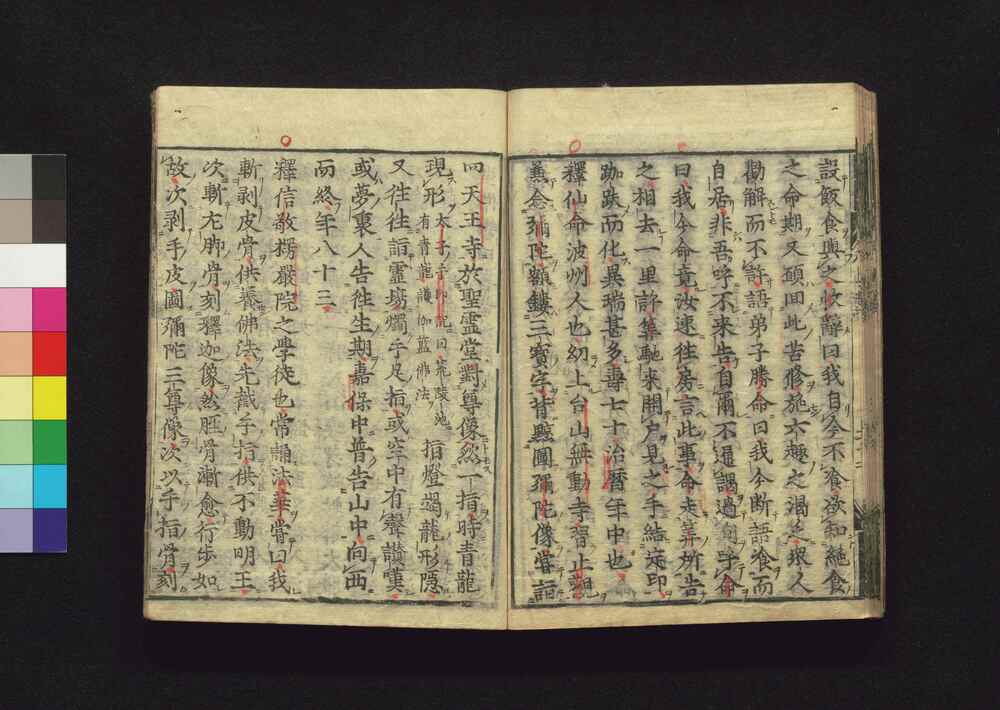 設飯食與之收辭曰我自今不飡欲知絶食
之命期又碩回此苦修施六趣之渴乏衆人
勸解而不許語弟子勝命曰我今断語飡而
自居非吾呼不来告自爾不通謁過旬呼命
曰我今命竟汝速往房言此事命走弄所告
之相去一里許集馳来開戸見之手結定印
跏趺而化異瑞甚多壽七十治暦年中也
釋仙命波州人也幼上台山無動寺習止觀
兼念彌陀額鏤三寶字背點圖彌陀像嘗詣
四天王寺於聖霊堂對尊像然一指時青龍
現形太子手印記曰荒陵池有青龍護伽藍佛法指燈竭龍形隱
又往往詣靈場燭手足指或空中有聲讃嘆
或夢裏人告往生期嘉保中普告山中向西
而終年八十三
釋信敬楞嚴院之學徒也常誦法華嘗曰我
斬剥皮骨供養佛法先截手指供不動明王
次斬左脚骨刻釋迦像然脛骨漸愈行步如
故次剥手皮圖彌陀三尊像次以手指骨刻